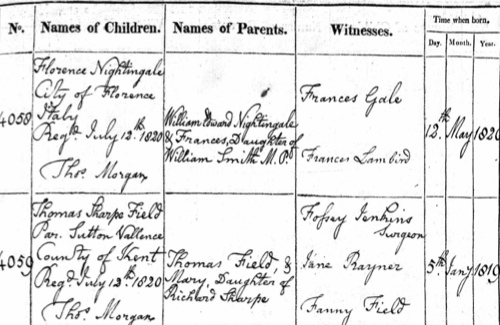 No. Names of Children. Names of Parents. Witnesses. Time when born.
Day. Month. Year.
4058
Florence Nightingale
City of Florence
Italy
Regd. July 12th. 1820
Thos. Morgan
William Edward Nightingale
& Frances, Daughter of
William Smith M.P.
Frances Gale
Frances Lambird
12th. May 1820
4059
Thomas Sharpe Field
Par. Sutton Vallence
County of Kent
Regd. July 12th. 1820
Thos. Morgan
Thomas Field, &
Mary, Daughter of
Richard Sharpe
Fossey Jenkins
Surgeon
Jane Rayner
Fanny Field
5th. Jany 1819